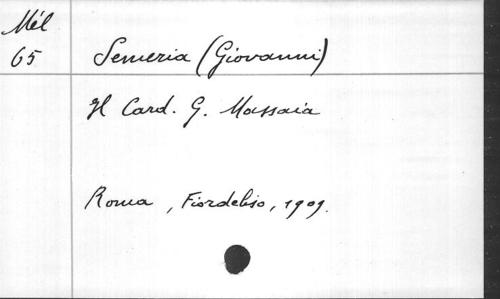 Mél
65
Semeria (Giovanni)
Il Card. G. Massaia
Roma, Fiordeliso, 1909.